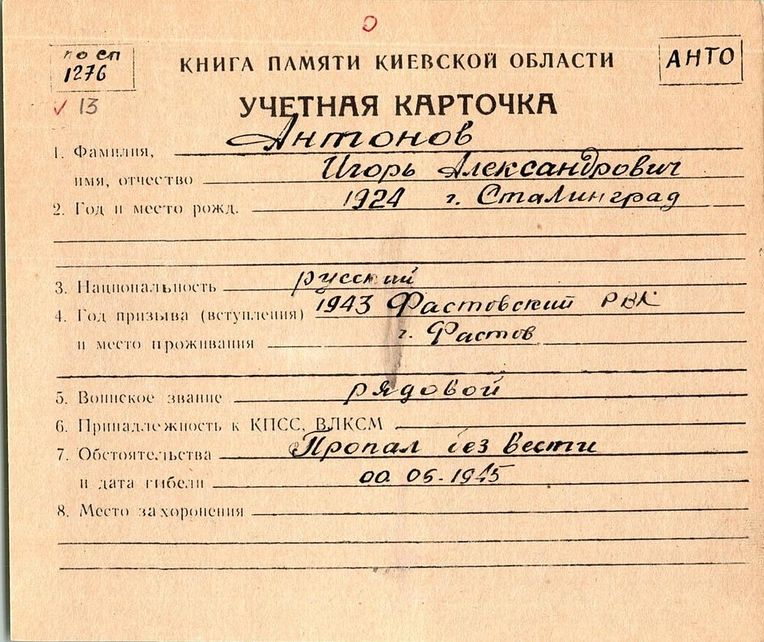 О
по сп
1276
КНИГА ПАМЯТИ КИЕВСКОЙ ОБЛАСТИ
АНТО
13
УЧЕТНАЯ КАРТОЧКА
1. Фамилия, Антонов
имя, отчество Игорь Александрович
2. Год и место рожд. 1924 г. Сталинград
3. Национальность русский
4. Год призыва (вступления) 1943 Фастовский РВК
и место проживания г. Фастов
5. Воинское звание рядовой
6. Принадлежность к КПСС, ВЛКСМ
7. Обстоятельства Пропал без вести
и дата гибели 00.06.1945
8. Место захоронения